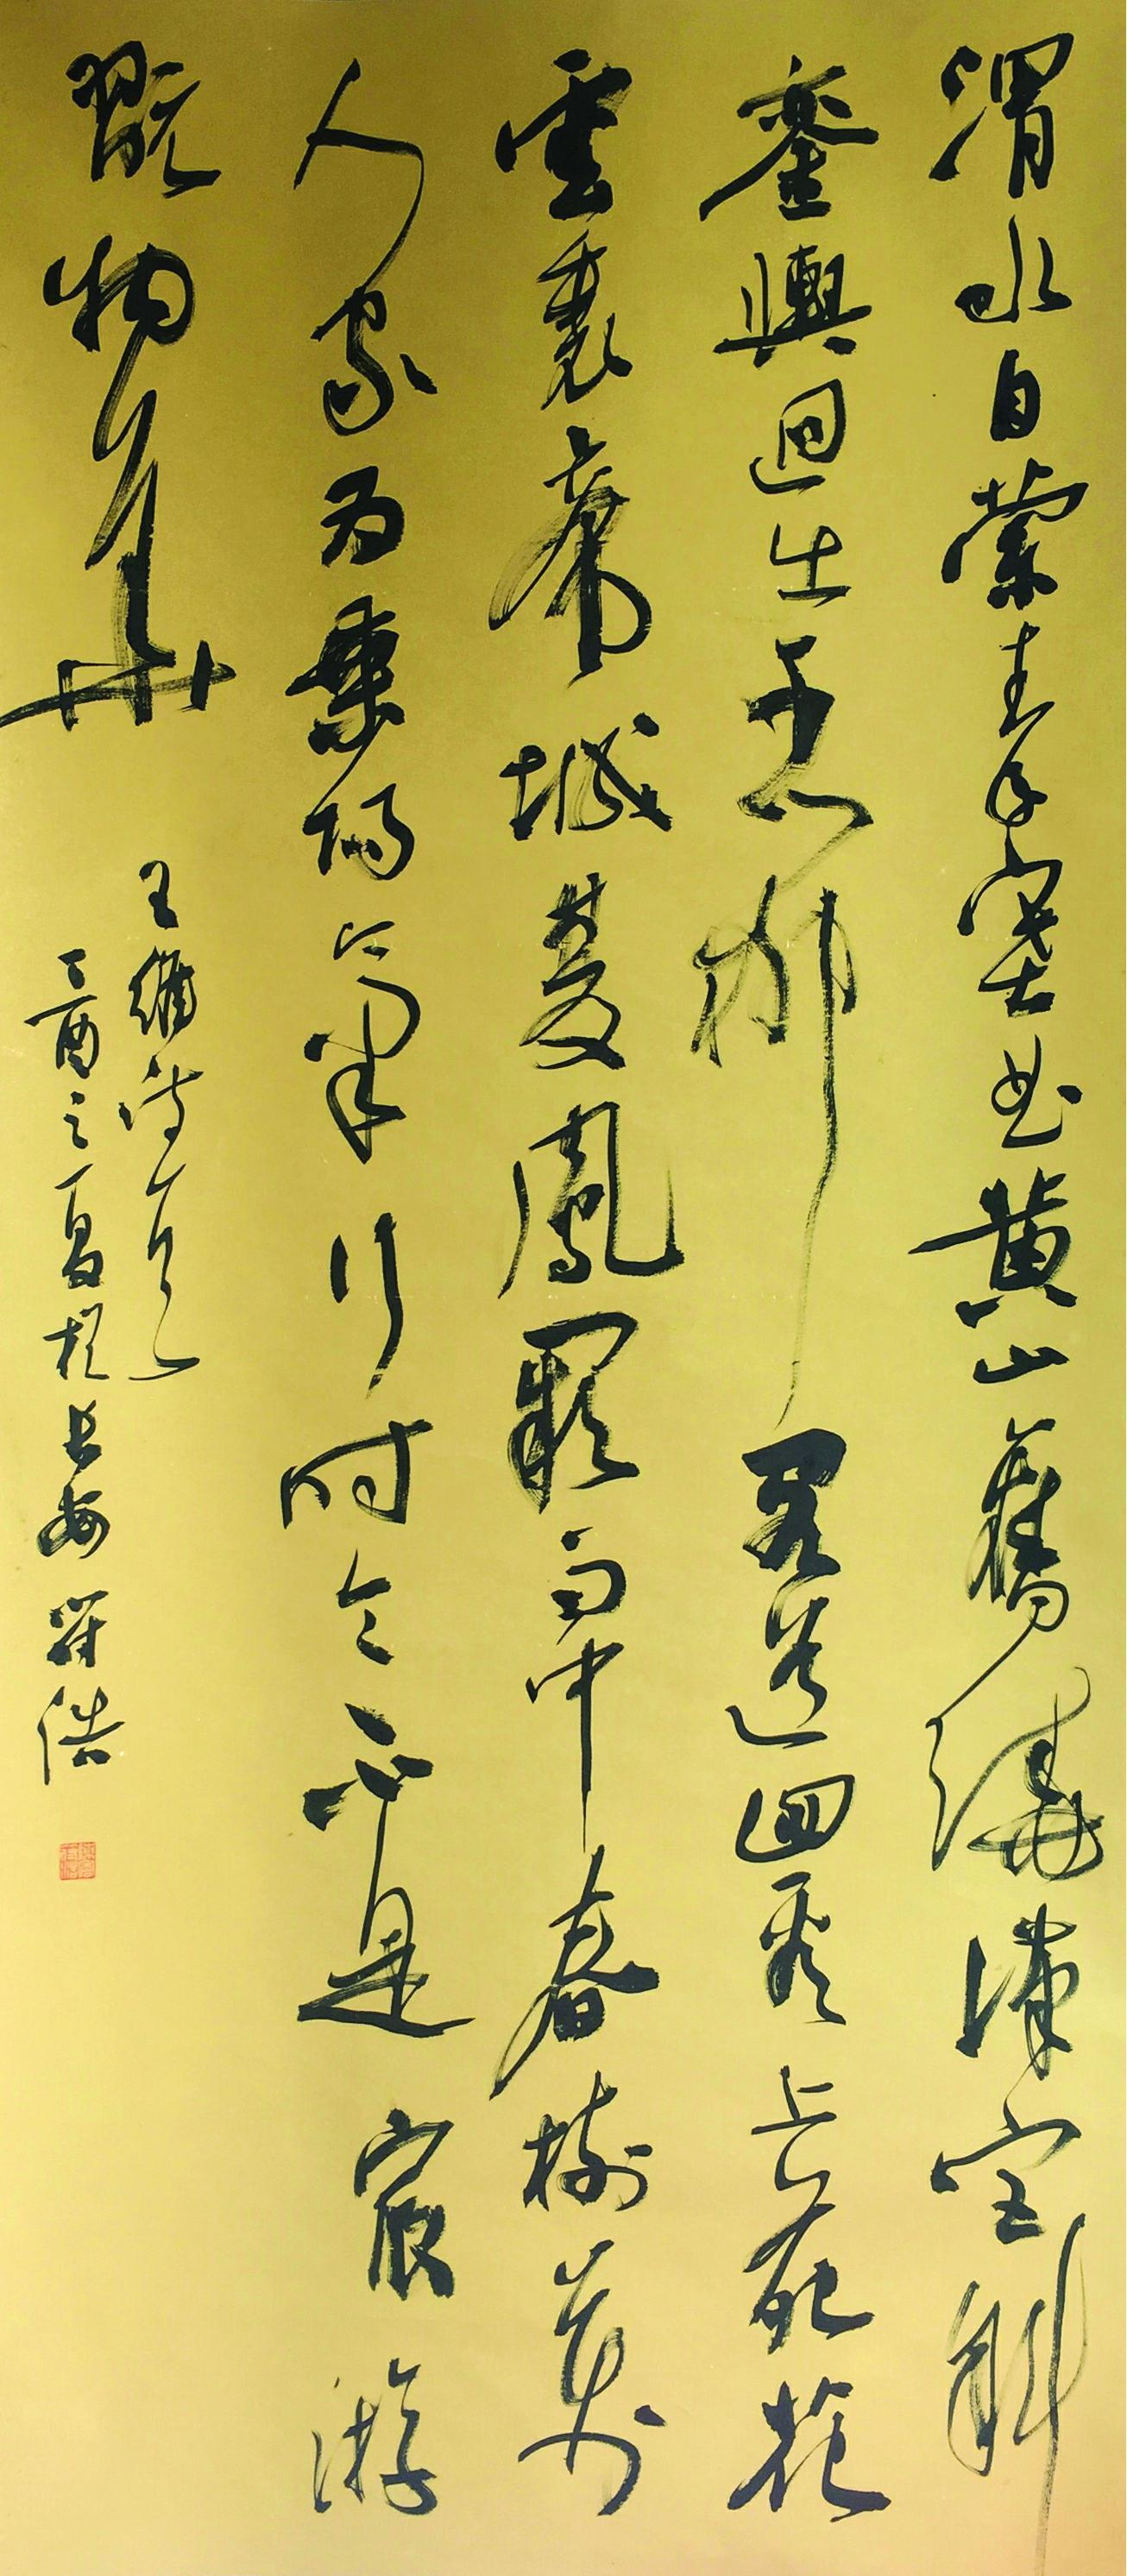 渭水自縈秦塞曲黃山舊繞漢宮斜
鑾輿迥出千門柳閣道回看上苑花
雲裏帝城雙鳳闕雨中春樹萬
人家為乘陽氣行時令不是宸游
翫物華
王維詩一首
丁酉之夏於長安 浩